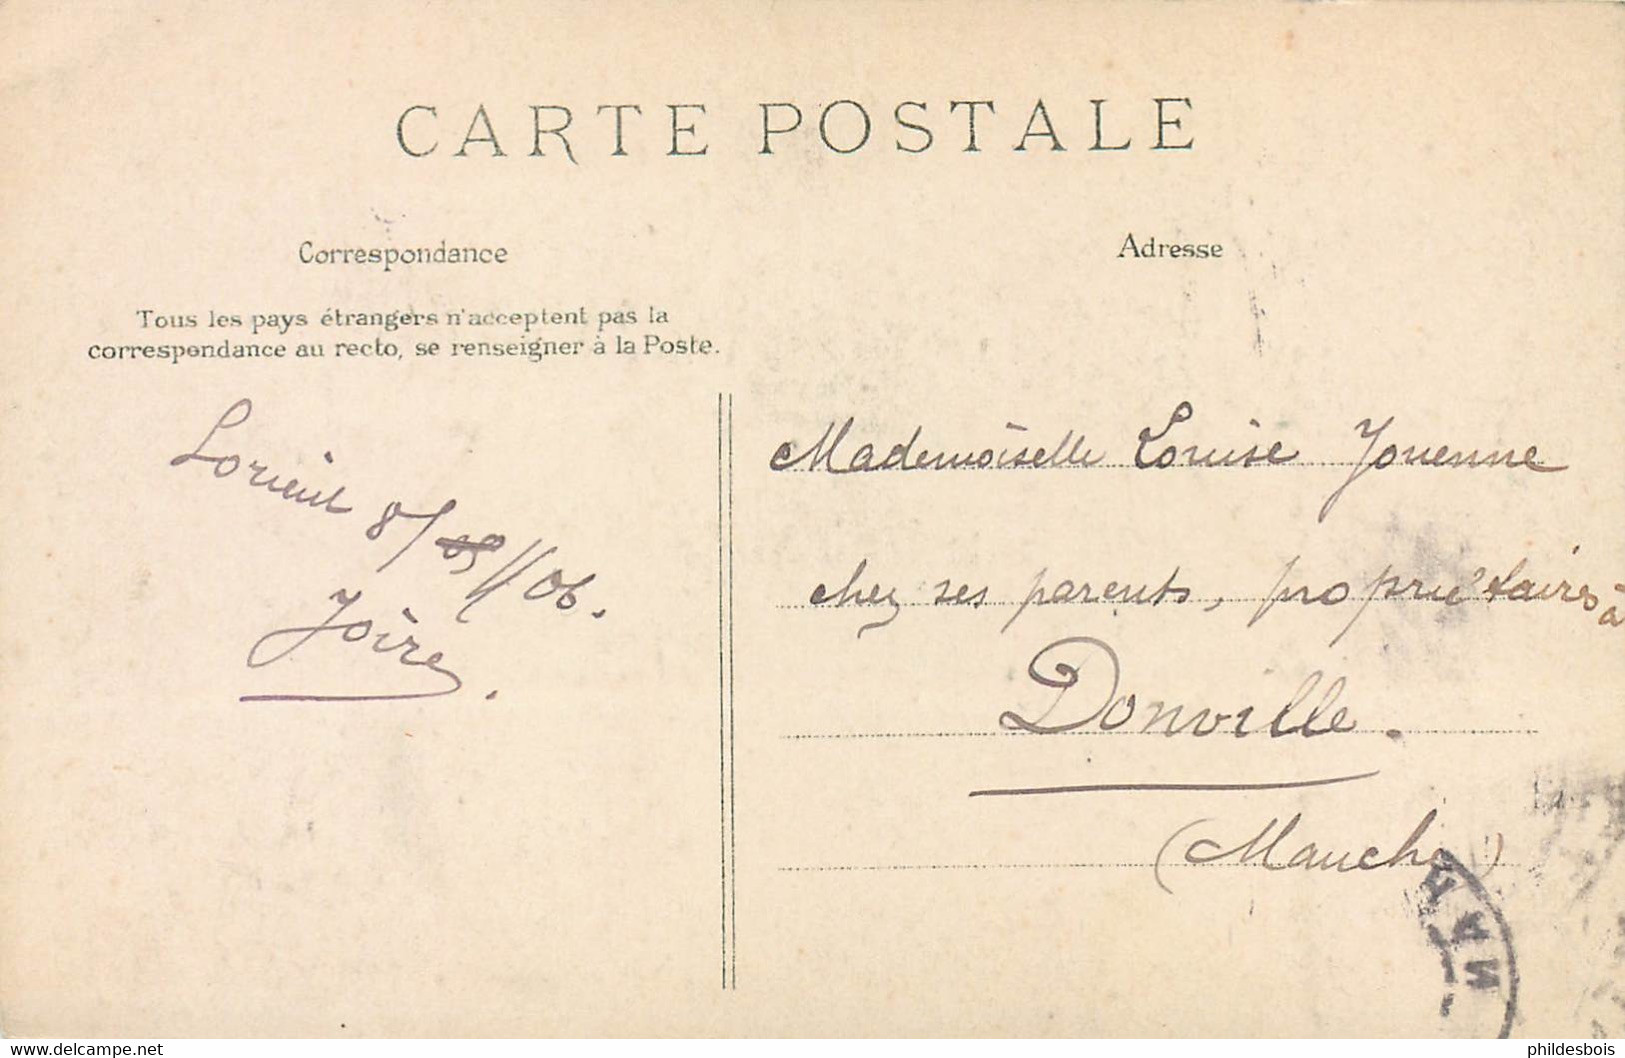 CARTE POSTALE
Correspondance
Tous les pays étrangers n'acceptent pas la
correspondance au recto, se renseigner à la Poste.
Lorient 8/ /06.
Joire.
Adresse
Mademoiselle Louise Jouenne
chez ses parents, propriétaires à
Donville.
(Manche)
MAN
delcampe.net
phildesbois